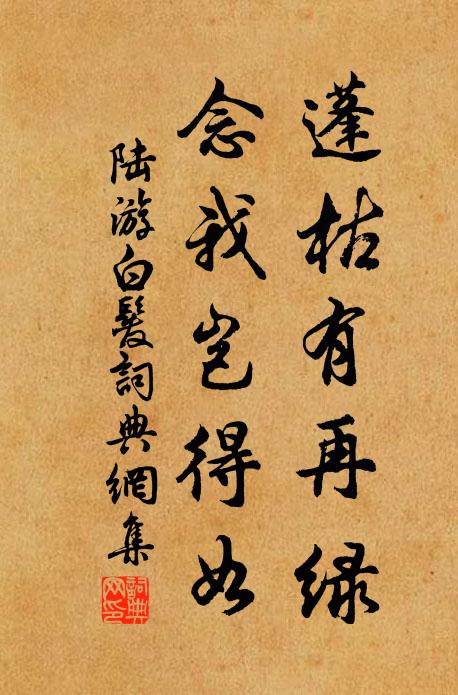 蓬枯有再綠
念我岂得如
陆游白髮詞典網集
詞典
网印